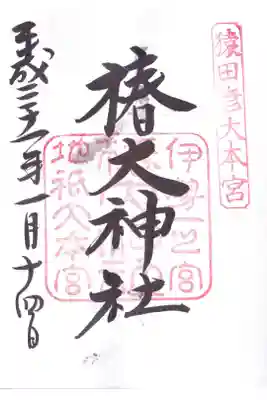 猿田彦大本宮
椿大神社
伊勢一之宮
地祇大本宮
平成三十一年一月十四日